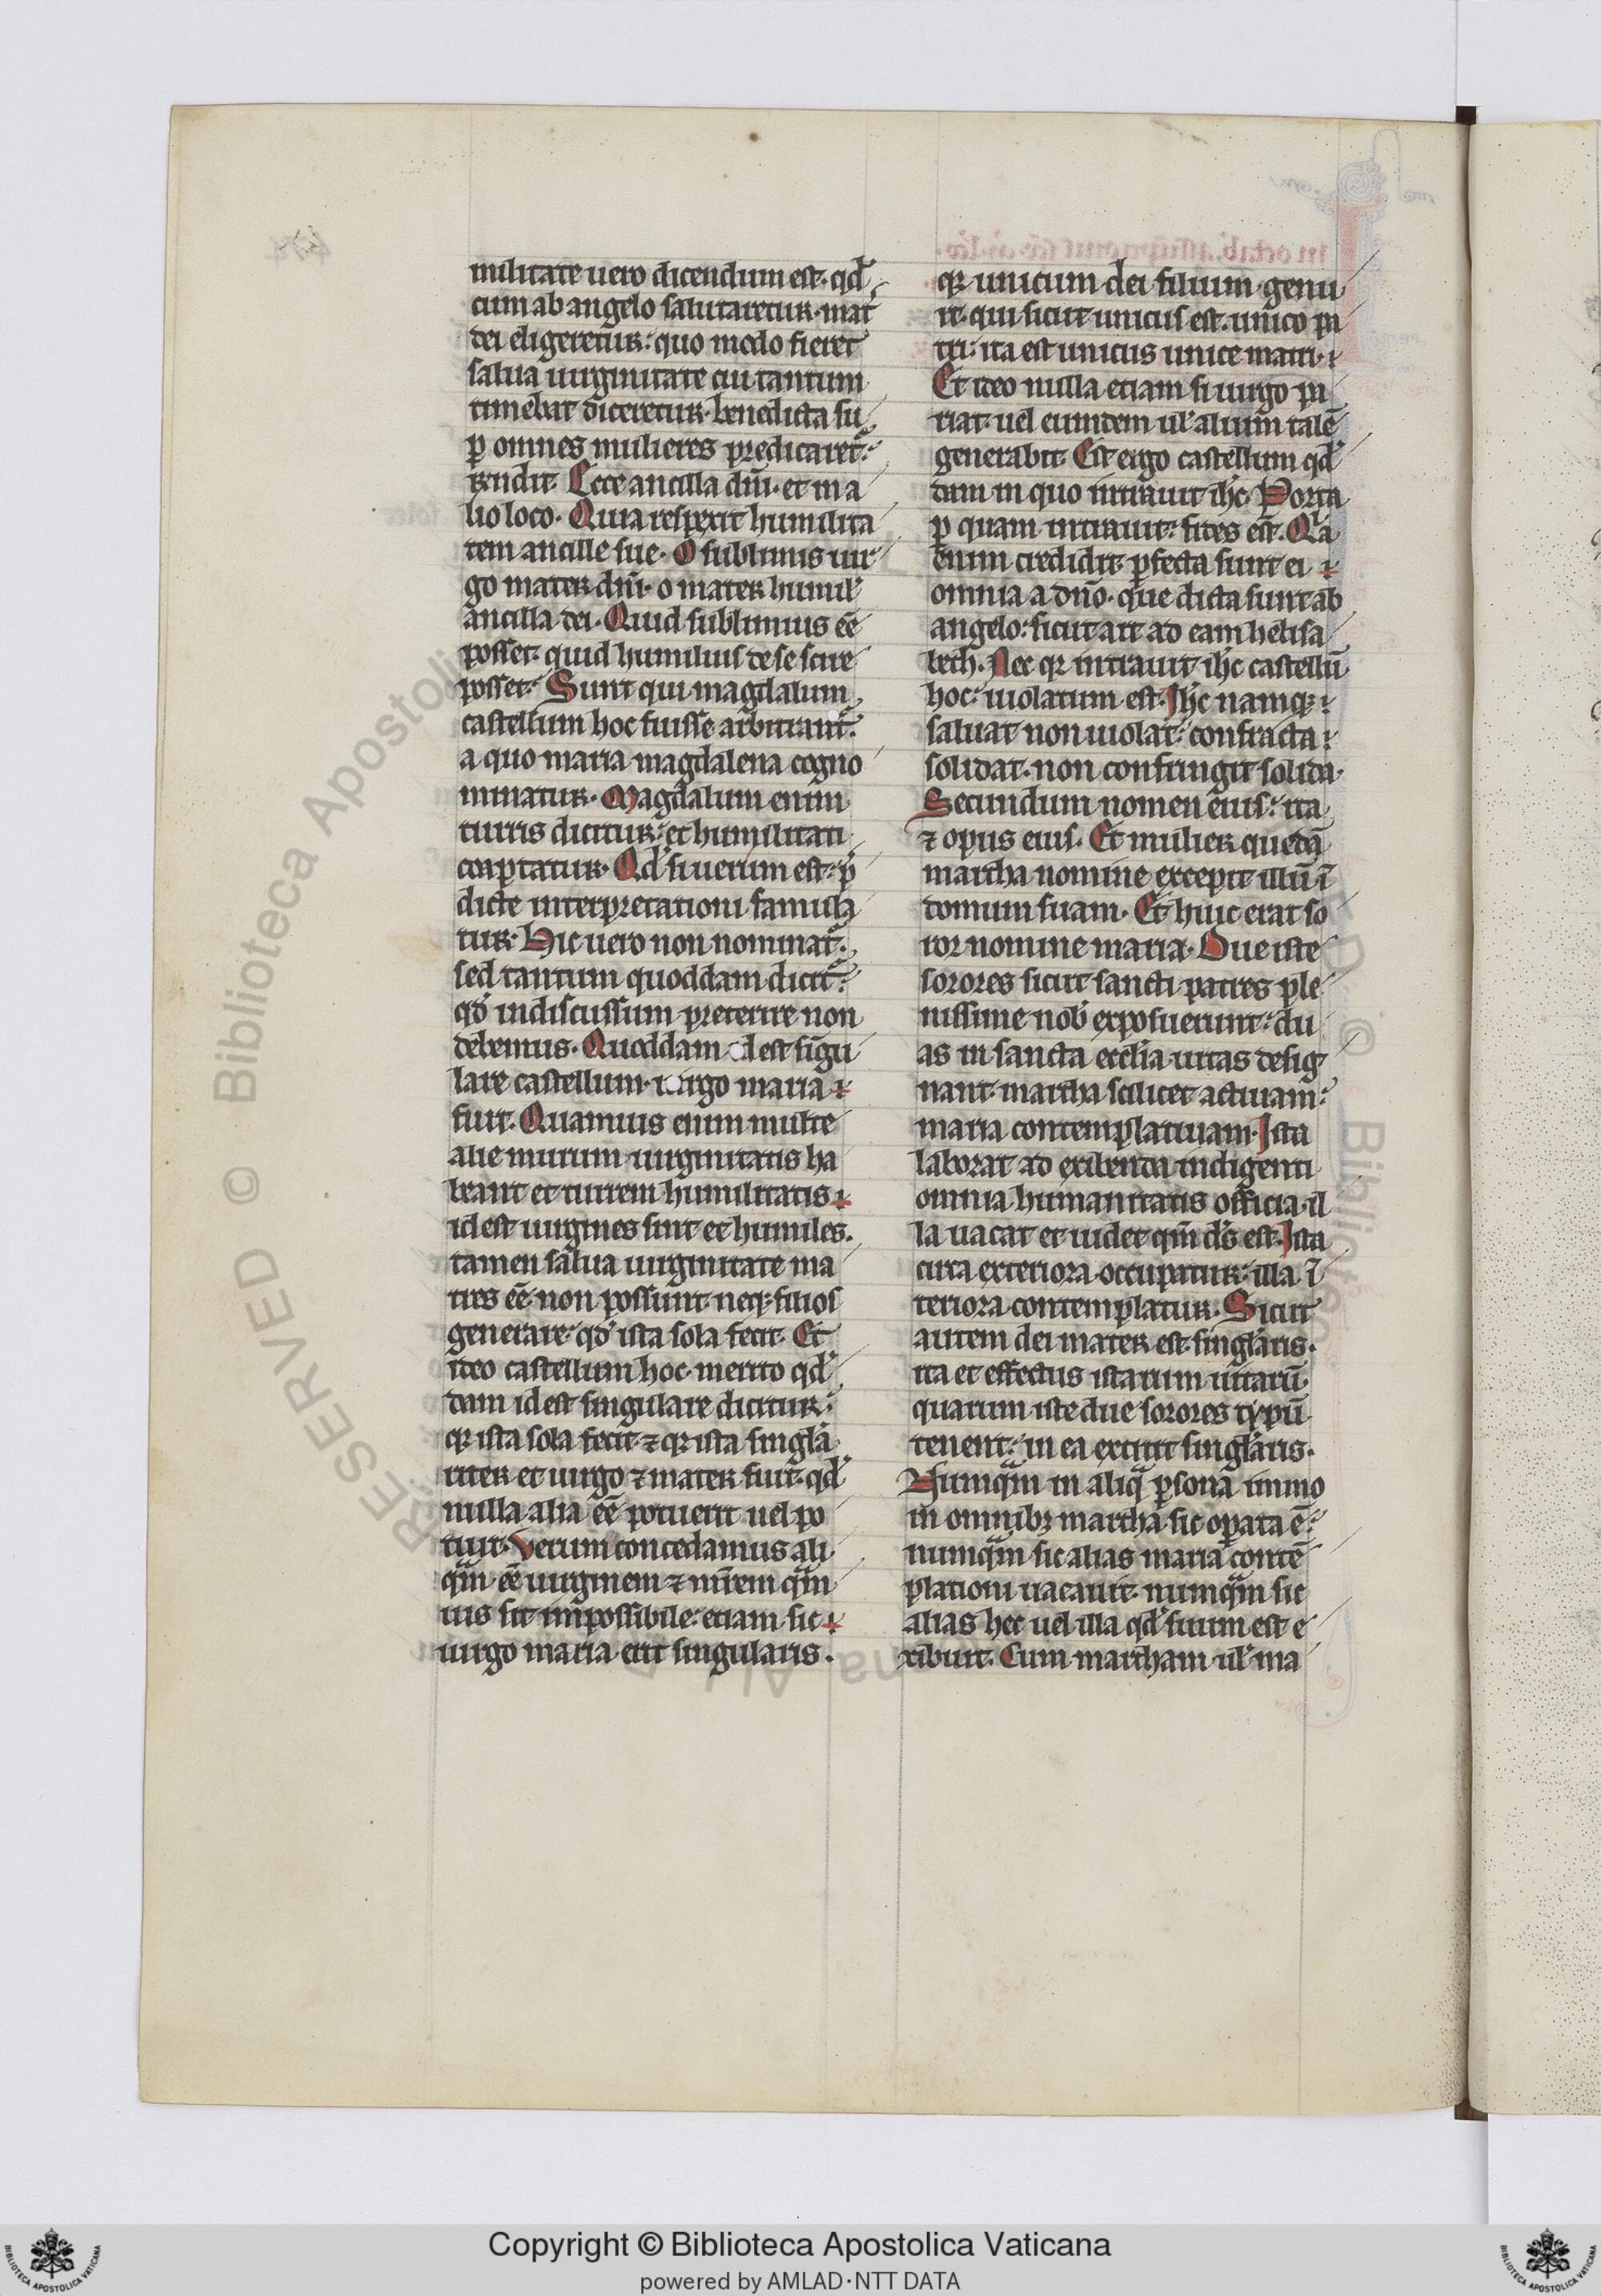 militate uero dicendum est. qd̕
cum ab angelo salutaretur. mat̕
dei eligeretur: quo modo fieret
salua uirginitate cui tantum
timebat diceretur. benedicta su
ꝑ omnes mulieres predicaret̕:
Ecce ancilla dn̄i. et in a
lio loco. Quia respexit humilita
tem ancille sue. O sublimis uir
go mater dn̄i. o mater humil̕
ancilla dei. Quid sublimius eē
posset. quid humilius de se scire
posset. Sunt qui magdalum
castellum hoc fuisse arbitrant̕.
a quo maria magdalena cogno
minatur. Magdalum enim
turris dicitur: et humilitati
coaptatur. Qd̕ si uerum est: p̄
dicte interpretationi famula
tur. Hic uero non nominat̕.
sed tantum quoddam dicit̕:
qd̕ indiscussum preterire non
debemus. Quoddam id est singu
lare castellum. uirgo maria
fuit. Quamuis enim multe
alie murum uirginitatis ha
beant et turrem humilitatis
id est uirgines sint et humiles.
tamen salua uirginitate ma
tres eē non possunt neqꝫ filios
generare: qd̕ ista sola fecit. Et
ideo castellum hoc merito qd̕
dam id est singulare dicitur:
qꝛ ista sola fecit ⁊ qꝛ ista singla
riter et uirgo ⁊ mater fuit. qd̕
nulla alia eē potuerit uel po
tuit. Verum concedamus ali
qm̄ eē uirginem ⁊ mr̄em qm̄
uis sit impossibile: etiam sic
uirgo maria erit singularis.
qꝛ unicum dei filium genu
it. qui sicut unicus est. unico pa
tri: ita est unicus unice matri.
Et ideo nulla etiam si uirgo pa
riat. uel eumdem ul̕ alium talē
generabit. Est ergo castellum qd̕
dam in quo intrauit ihc̄. Porta
ꝑ quam intrauit: fides est. Qa
enim credidit. ꝑfecta sunt ei
omnia a dn̄o. que dicta sunt ab
angelo: sicut ait ad eam helisa
beth. Nec qꝛ intrauit ihc̄ castellū
hoc: uiolatum est. Ihc̄ namqꝫ
saluat non uiolat: confracta
solidat. non confringit solida.
Secundum nomen eius: ita
⁊ opus eius. Et mulier quedā
martha nomine excepit illū ī
domum suam. Et huic erat so
ror nomine maria. Due iste
sorores sicut sancti patres ple
nissime nob̕ exposuerunt: du
as in sancta eccl̄ia uitas desig
nant. martha scilicet actiuam:
maria contemplatiuam. Ista
laborat ad exibenda indigenti
omnia humanitatis officia. il
la uacat et uidet qm̄ ds̄ est. Ista
circa exteriora occupatur: illa ī
teriora contemplatur. Sicut
autem dei mater est singl̕aris.
ita et effectus istarum uitarū
quarum iste due sorores typū
tenent: in ea extitit singl̕aris.
Numqm̄ in aliq̄ ꝑsona immo
in omnibꝫ martha sic oꝑata ē:
numqm̄ sic alias maria contē
plationi uacauit. numqm̄ sic
alias hec uel illa qd̕ suum est e
xibuit. Cum martham ul̕ ma
Copyright © Biblioteca Apostolica Vaticana
powered by AMLAD·NTT DATA